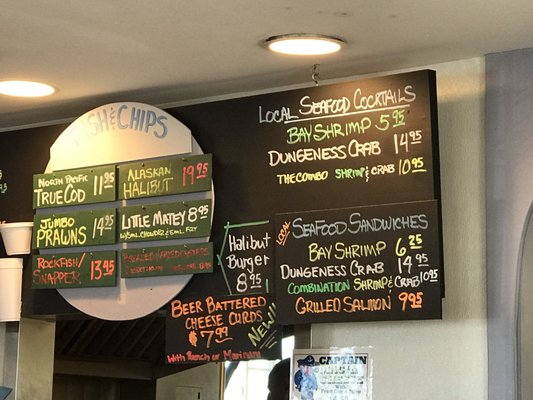 FISH & CHIPS
NORTH PACIFIC
TRUE COD 11.95
ALASKAN
HALIBUT 19.95
JUMBO
PRAWNS 14.95
LITTLE MATEY 8.95
W/SML CHOWDER & SML FRY
ROCKFISH/
SNAPPER 13.95
LOCAL SEAFOOD COCKTAILS
BAY SHRIMP 5.95
DUNGENESS CRAB 14.95
THE COMBO SHRIMP & CRAB 10.95
LOCAL SEAFOOD SANDWICHES
BAY SHRIMP 6.25
DUNGENESS CRAB 14.95
COMBINATION SHRIMP & CRAB 10.95
GRILLED SALMON 9.95
Halibut
Burger
8.95
BEER BATTERED
CHEESE CURDS
$7.99
NEW!
With Ranch or Marinara
CAPTAIN